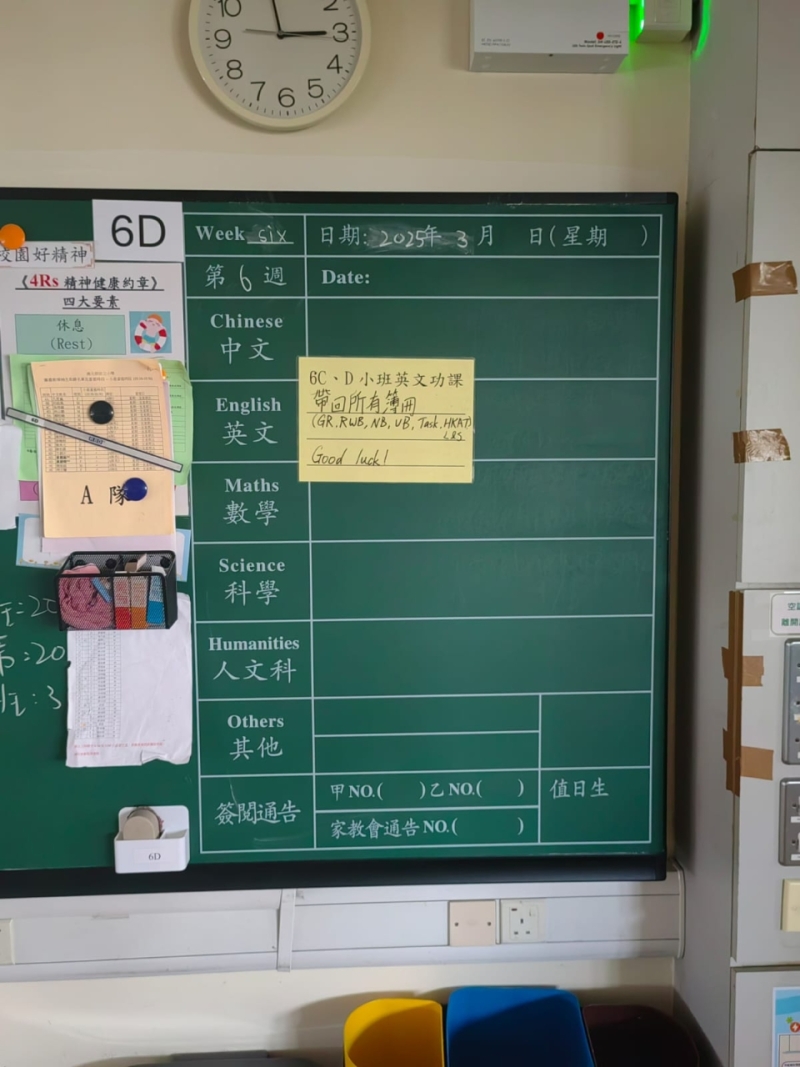 10
2
9
3
8
4
7
6
5
6D
Week six
日期: 2025年 3 月 日(星期 )
第 6 週
Date:
校園好精神
《4Rs 精神健康約章》
四大要素
休息
(Rest)
A 隊
6D
Chinese
中文
English
英文
6C、D 小班英文功課
帶回所有簿冊
(GR, RWB, NB, UB, Task, HKAT)
Good luck!
Maths
數學
Science
科學
Humanities
人文科
Others
其他
簽閱通告
甲NO.( )乙NO.( )
家教會通告NO.( )
值日生